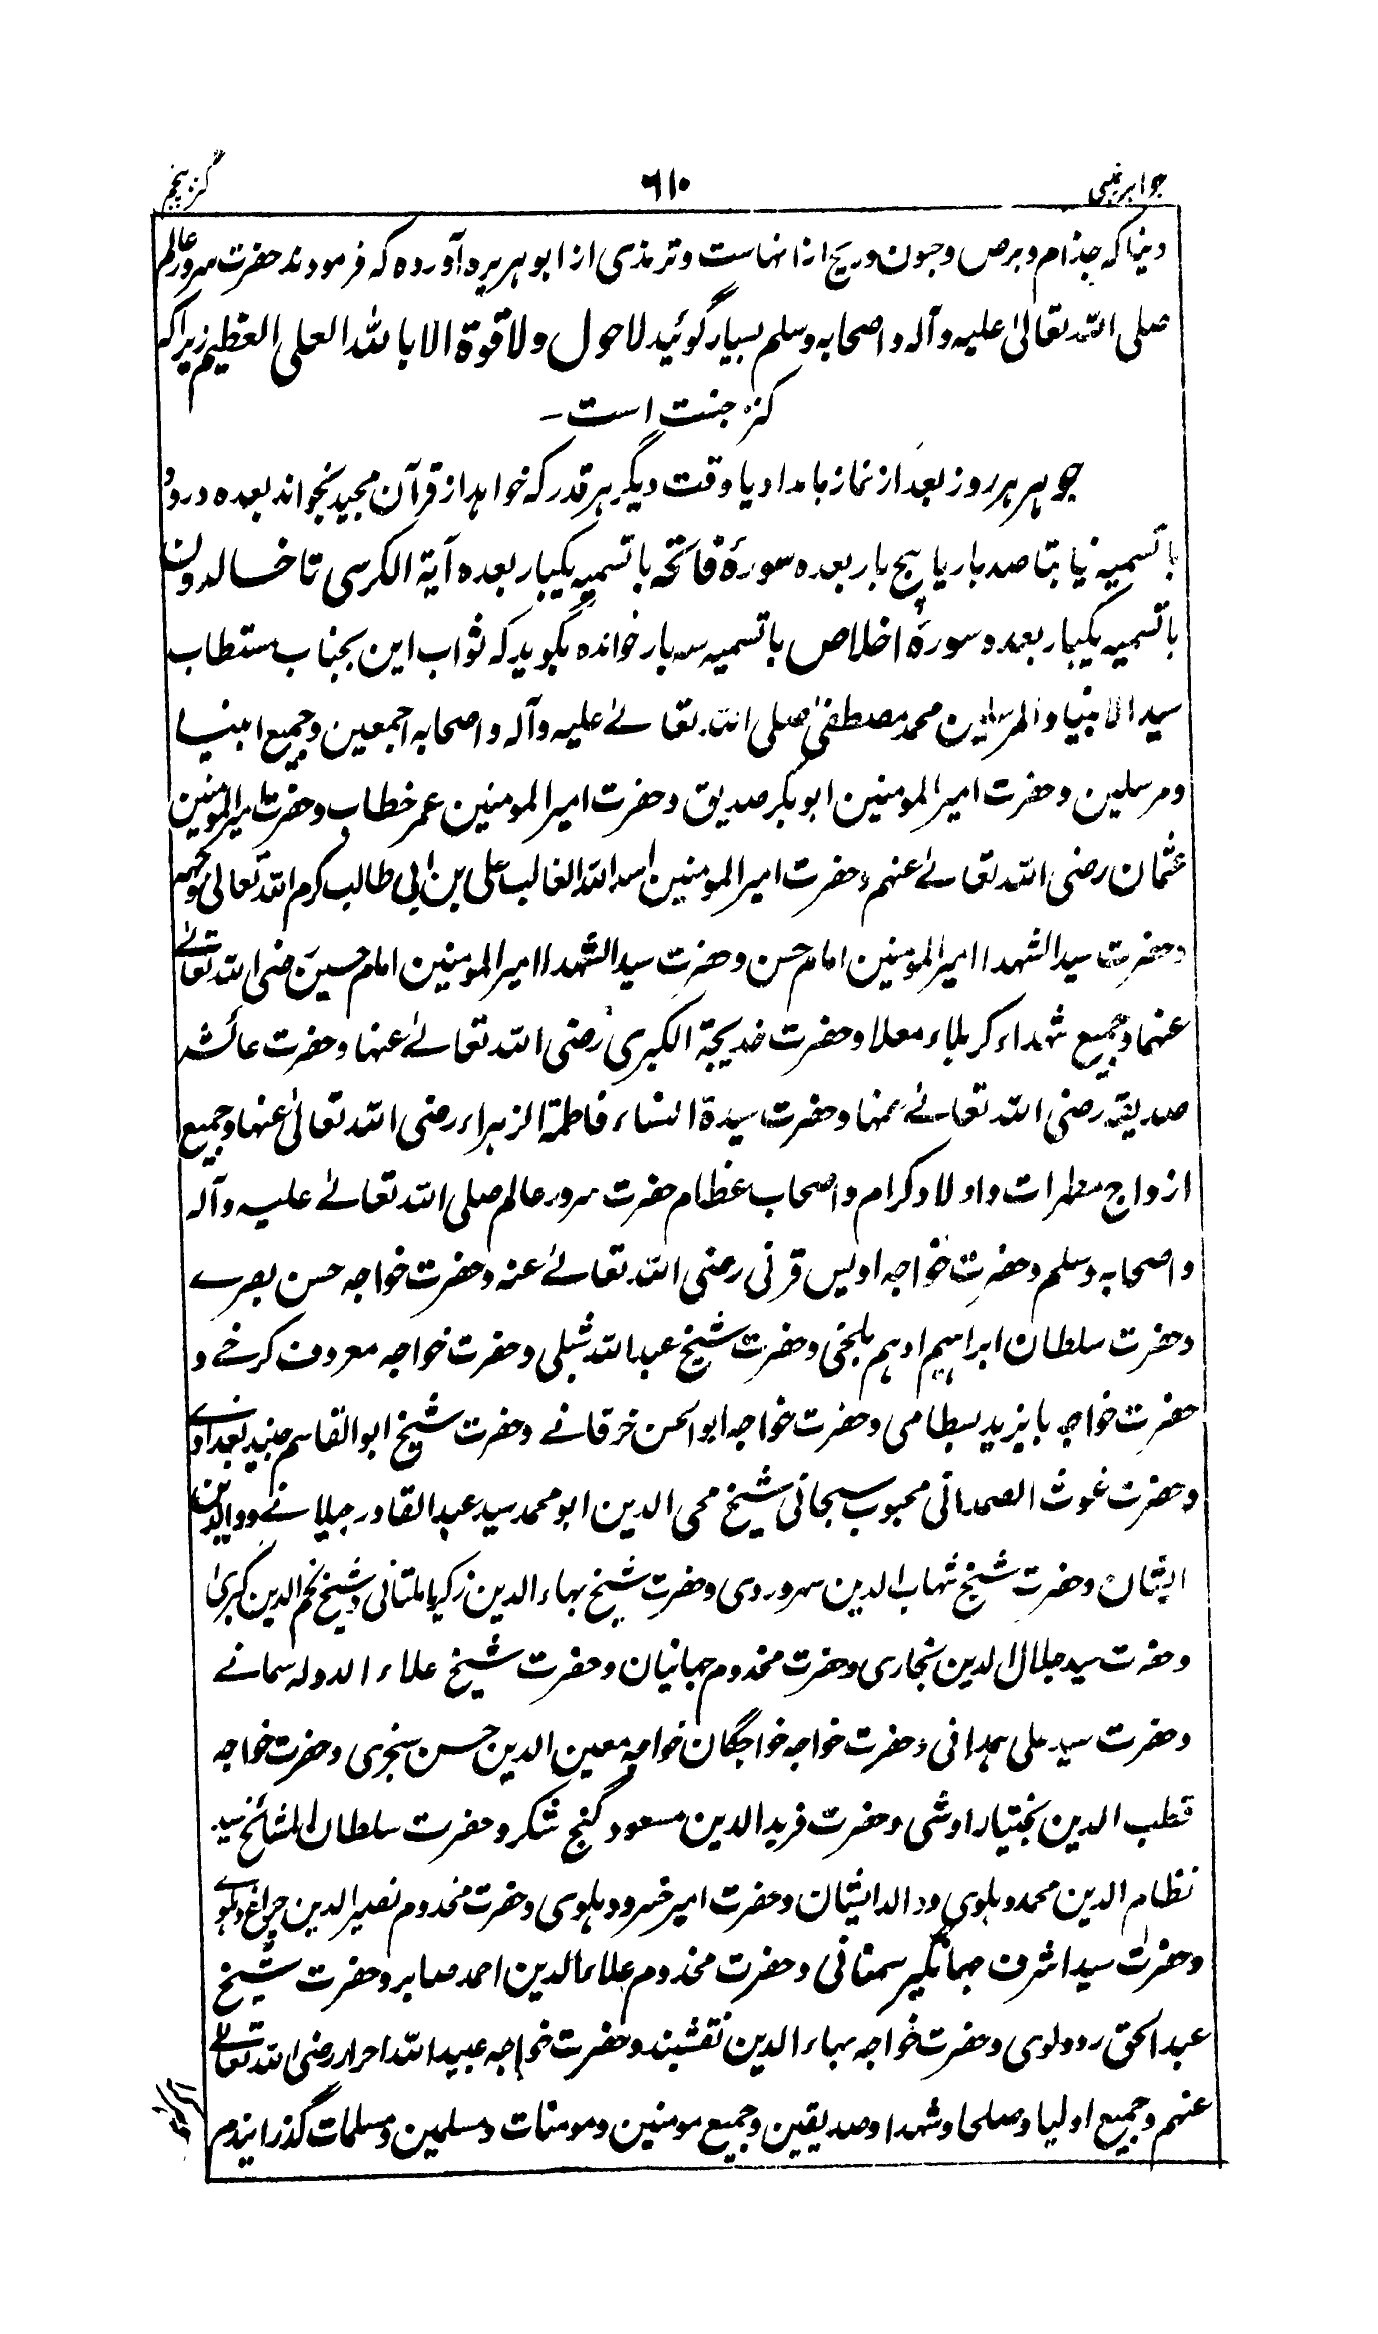 جواہر غیبی ۶۱۰ کنز پنجم
دنیا کہ جذام و برص و جنون و ریح ازانہاست و ترمذی از ابوہریرہ آوردہ کہ فرمودند حضرت سرور عالم
صلی اللہ تعالیٰ علیہ وآلہ واصحابہ وسلم بسیار گوئید لاحول ولاقوۃ الا باللہ العلی العظیم زیراکہ
کنز جنت است ۔
جوہر ہر روز بعد از نماز بامداد یا وقت دیگر ہر قدر کہ خواہد از قرآن مجید بخواند بعدہ درود
باتسمیہ تا صدبار یا پنج بار بعدہ سورۂ فاتحہ باتسمیہ یکبار بعدہ آیۃ الکرسی تا خالدون
باتسمیہ یکبار بعدہ سورۂ اخلاص باتسمیہ سہ بار خواندہ بگوید کہ ثواب این بجناب مستطاب
سید الانبیاء والمرسلین محمد مصطفیٰ صلی اللہ تعالےٰ علیہ وآلہ واصحابہ اجمعین وجمیع انبیا
ومرسلین وحضرت امیرالمومنین ابوبکر صدیق وحضرت امیرالمومنین عمر خطاب وحضرت امیرالمومنین
عثمان رضی اللہ تعالےٰ عنہم وحضرت امیرالمومنین اسد اللہ الغالب علی بن ابی طالب کرم اللہ تعالیٰ وجہہ
وحضرت سید الشہدا امیرالمومنین امام حسن وحضرت سید الشہدا امیرالمومنین امام حسین رضی اللہ تعالےٰ
عنہما وجمیع شہداء کربلاء معلا وحضرت خدیجۃ الکبریٰ رضی اللہ تعالےٰ عنہا وحضرت عائشہ
صدیقہ رضی اللہ تعالےٰ عنہا وحضرت سیدۃ النساء فاطمۃ الزہراء رضی اللہ تعالیٰ عنہا وجمیع
ازواج مطہرات واولاد کرام واصحاب عظام حضرت سرور عالم صلی اللہ تعالےٰ علیہ وآلہ
واصحابہ وسلم وحضرت خواجہ اویس قرنی رضی اللہ تعالےٰ عنہ وحضرت خواجہ حسن بصرے
وحضرت سلطان ابراہیم ادہم بلخی وحضرت شیخ عبداللہ شبلی وحضرت خواجہ معروف کرخے و
حضرت خواجہ بایزید بسطامی وحضرت خواجہ ابوالحسن خرقانے وحضرت شیخ ابوالقاسم جنید بغدادے
وحضرت غوث الصمدانی محبوب سبحانی شیخ محی الدین ابو محمد سید عبدالقادر جیلانے ووالدین
ایشان وحضرت شیخ شہاب الدین سہروردی وحضرت شیخ بہاء الدین زکریا ملتانی وشیخ نجم الدین کبریٰ
وحضرت سید جلال الدین بخاری وحضرت مخدوم جہانیان وحضرت شیخ علاء الدولہ سمانے
وحضرت سید علی ہمدانی وحضرت خواجہ خواجگان خواجہ معین الدین حسن سنجری وحضرت خواجہ
قطب الدین بختیار اوشی وحضرت فرید الدین مسعود گنج شکر وحضرت سلطان المشائخ سید
نظام الدین محمد دہلوی ووالد ایشان وحضرت امیر خسرو دہلوی وحضرت مخدوم نصیر الدین چراغ دہلوے
وحضرت سید اشرف جہانگیر سمنانی وحضرت مخدوم علاء الدین احمد صابر وحضرت شیخ
عبدالحق ردولوی وحضرت خواجہ بہاء الدین نقشبند وحضرت خواجہ عبید اللہ احرار رضی اللہ تعالےٰ
عنہم وجمیع اولیا وصلحا وشہدا وصدیقین وجمیع مومنین ومومنات ومسلمین ومسلمات گذرانیدم